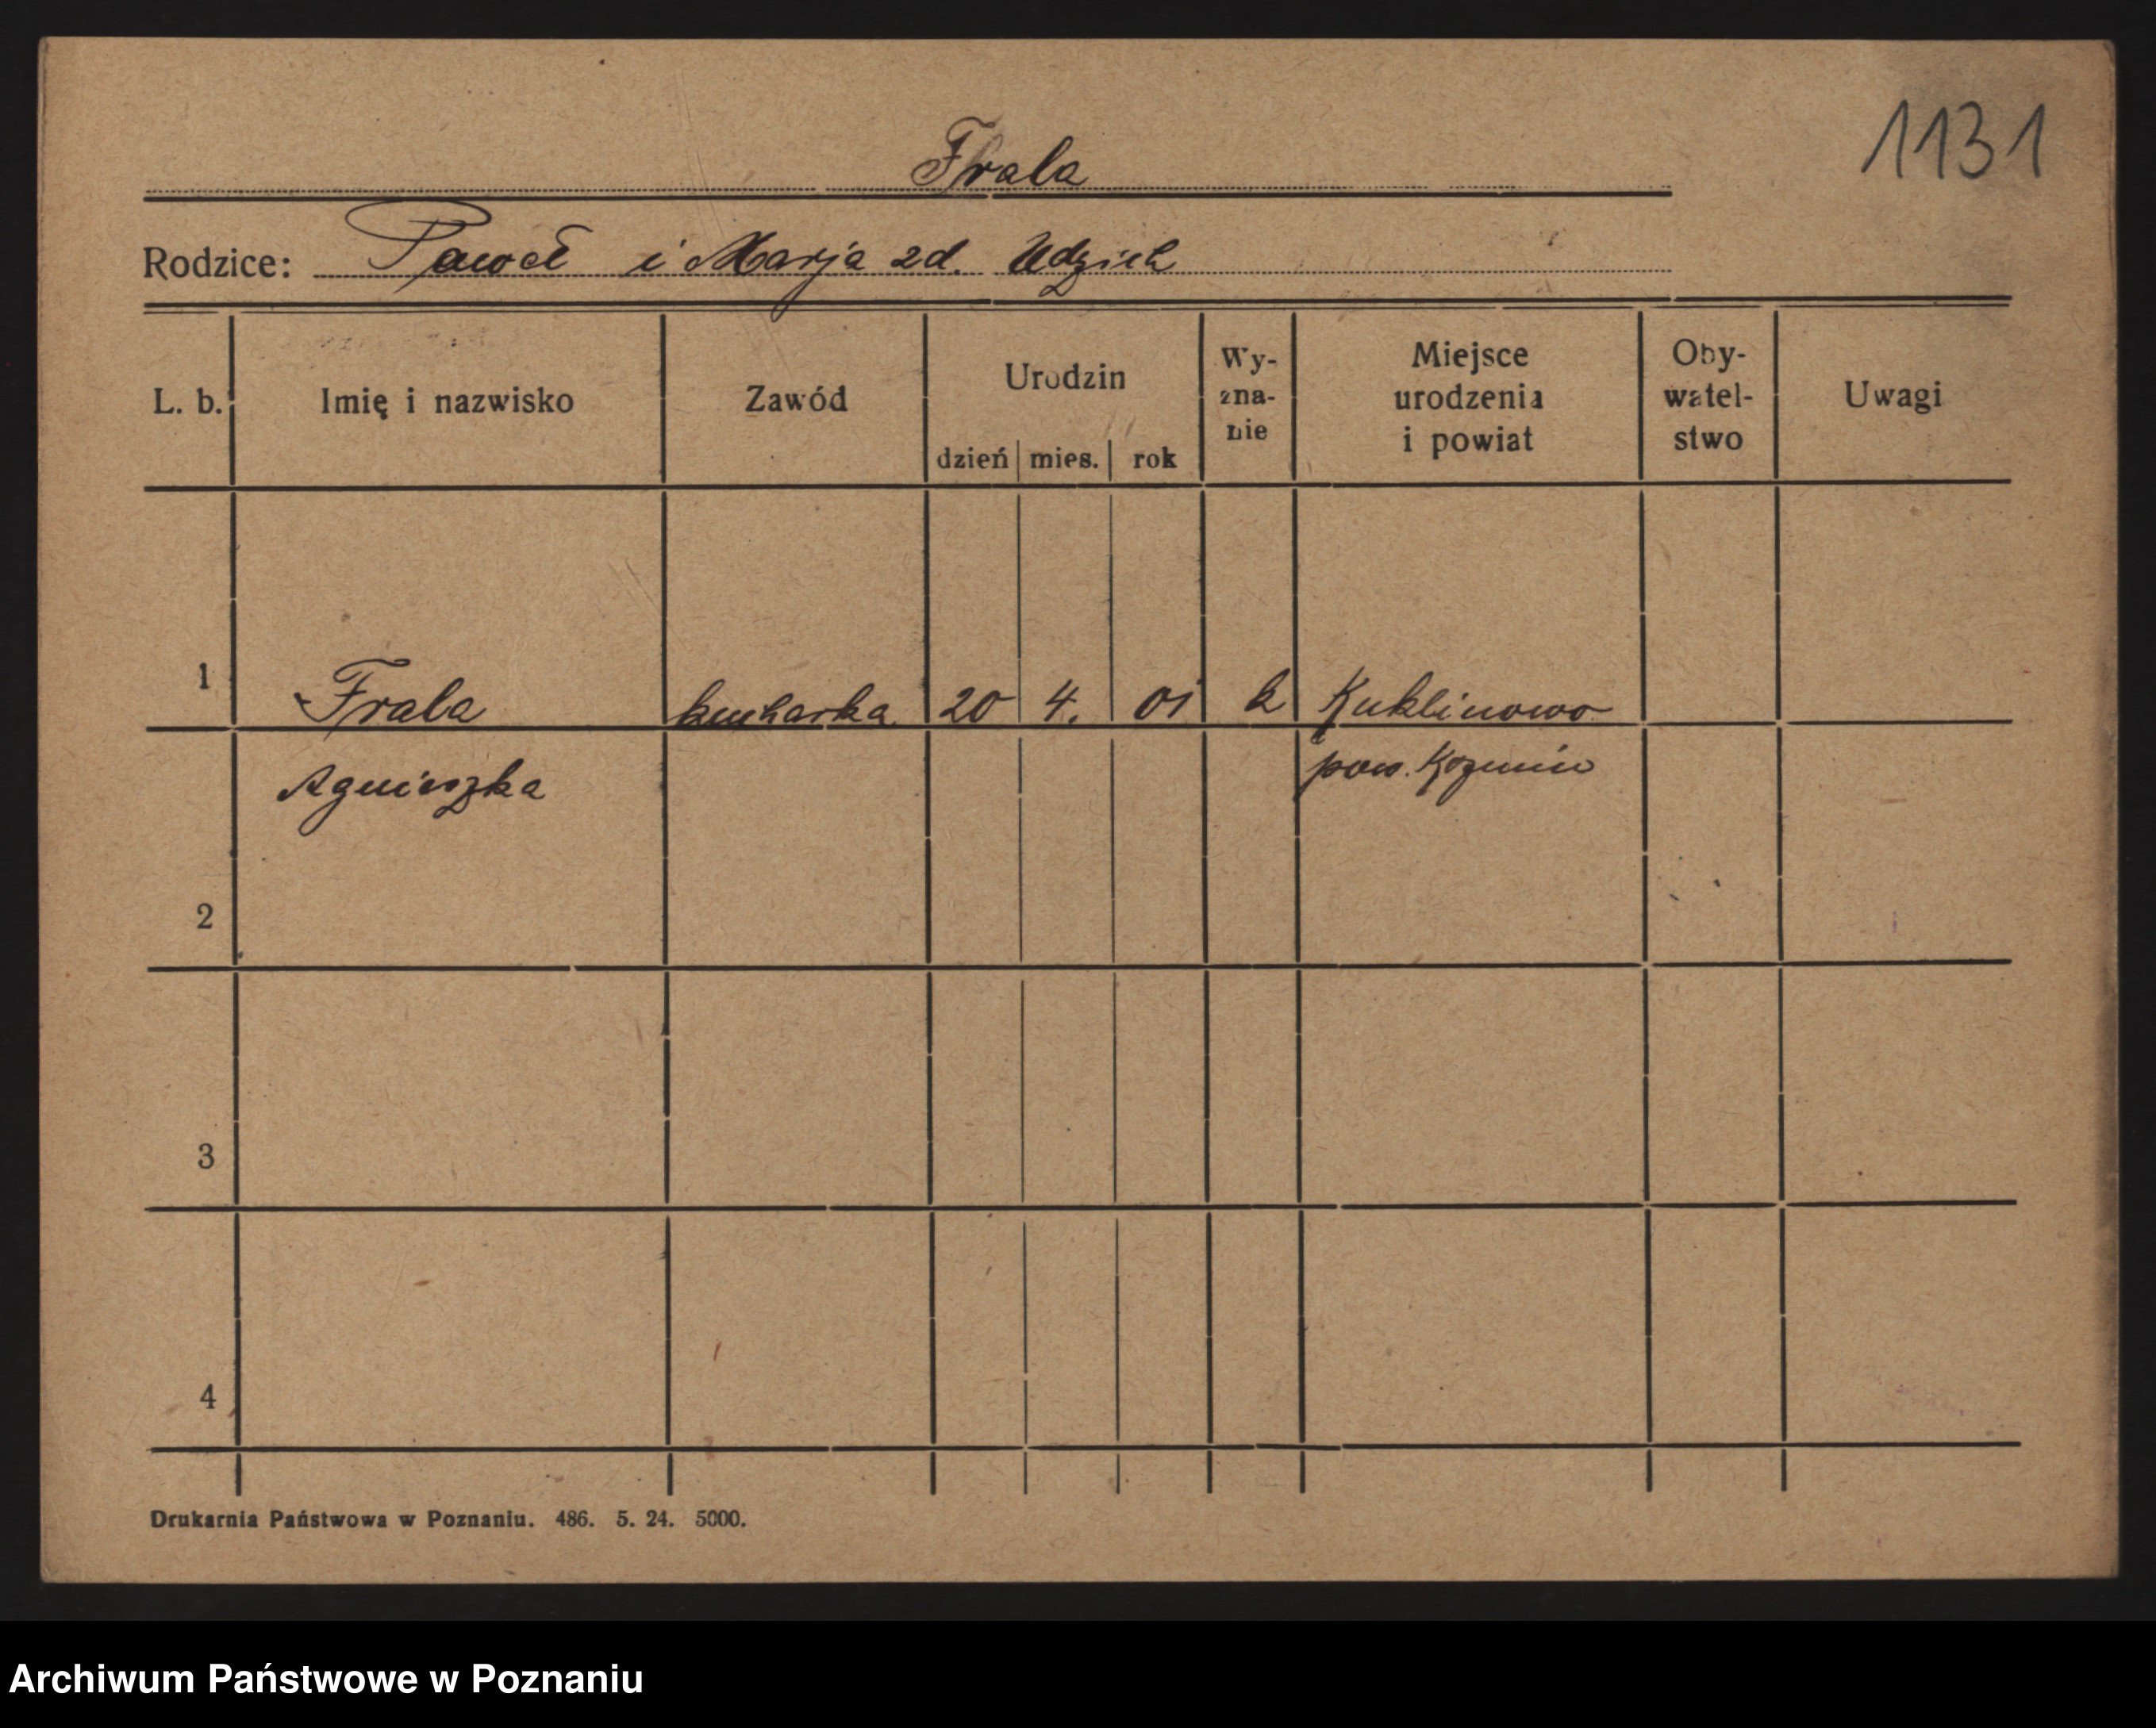 1131
Frala
Rodzice: Paweł i Marja zd. Udzich
L. b. Imię i nazwisko Zawód Urodzin dzień mies. rok Wy-zna-nie Miejsce urodzenia i powiat Oby-watel-stwo Uwagi
1 Frala kucharka 20 4. 01 k Kuklinowo
Agnieszka pow. Koźmin
2
3
4
Drukarnia Państwowa w Poznaniu. 486. 5. 24. 5000.
Archiwum Państwowe w Poznaniu